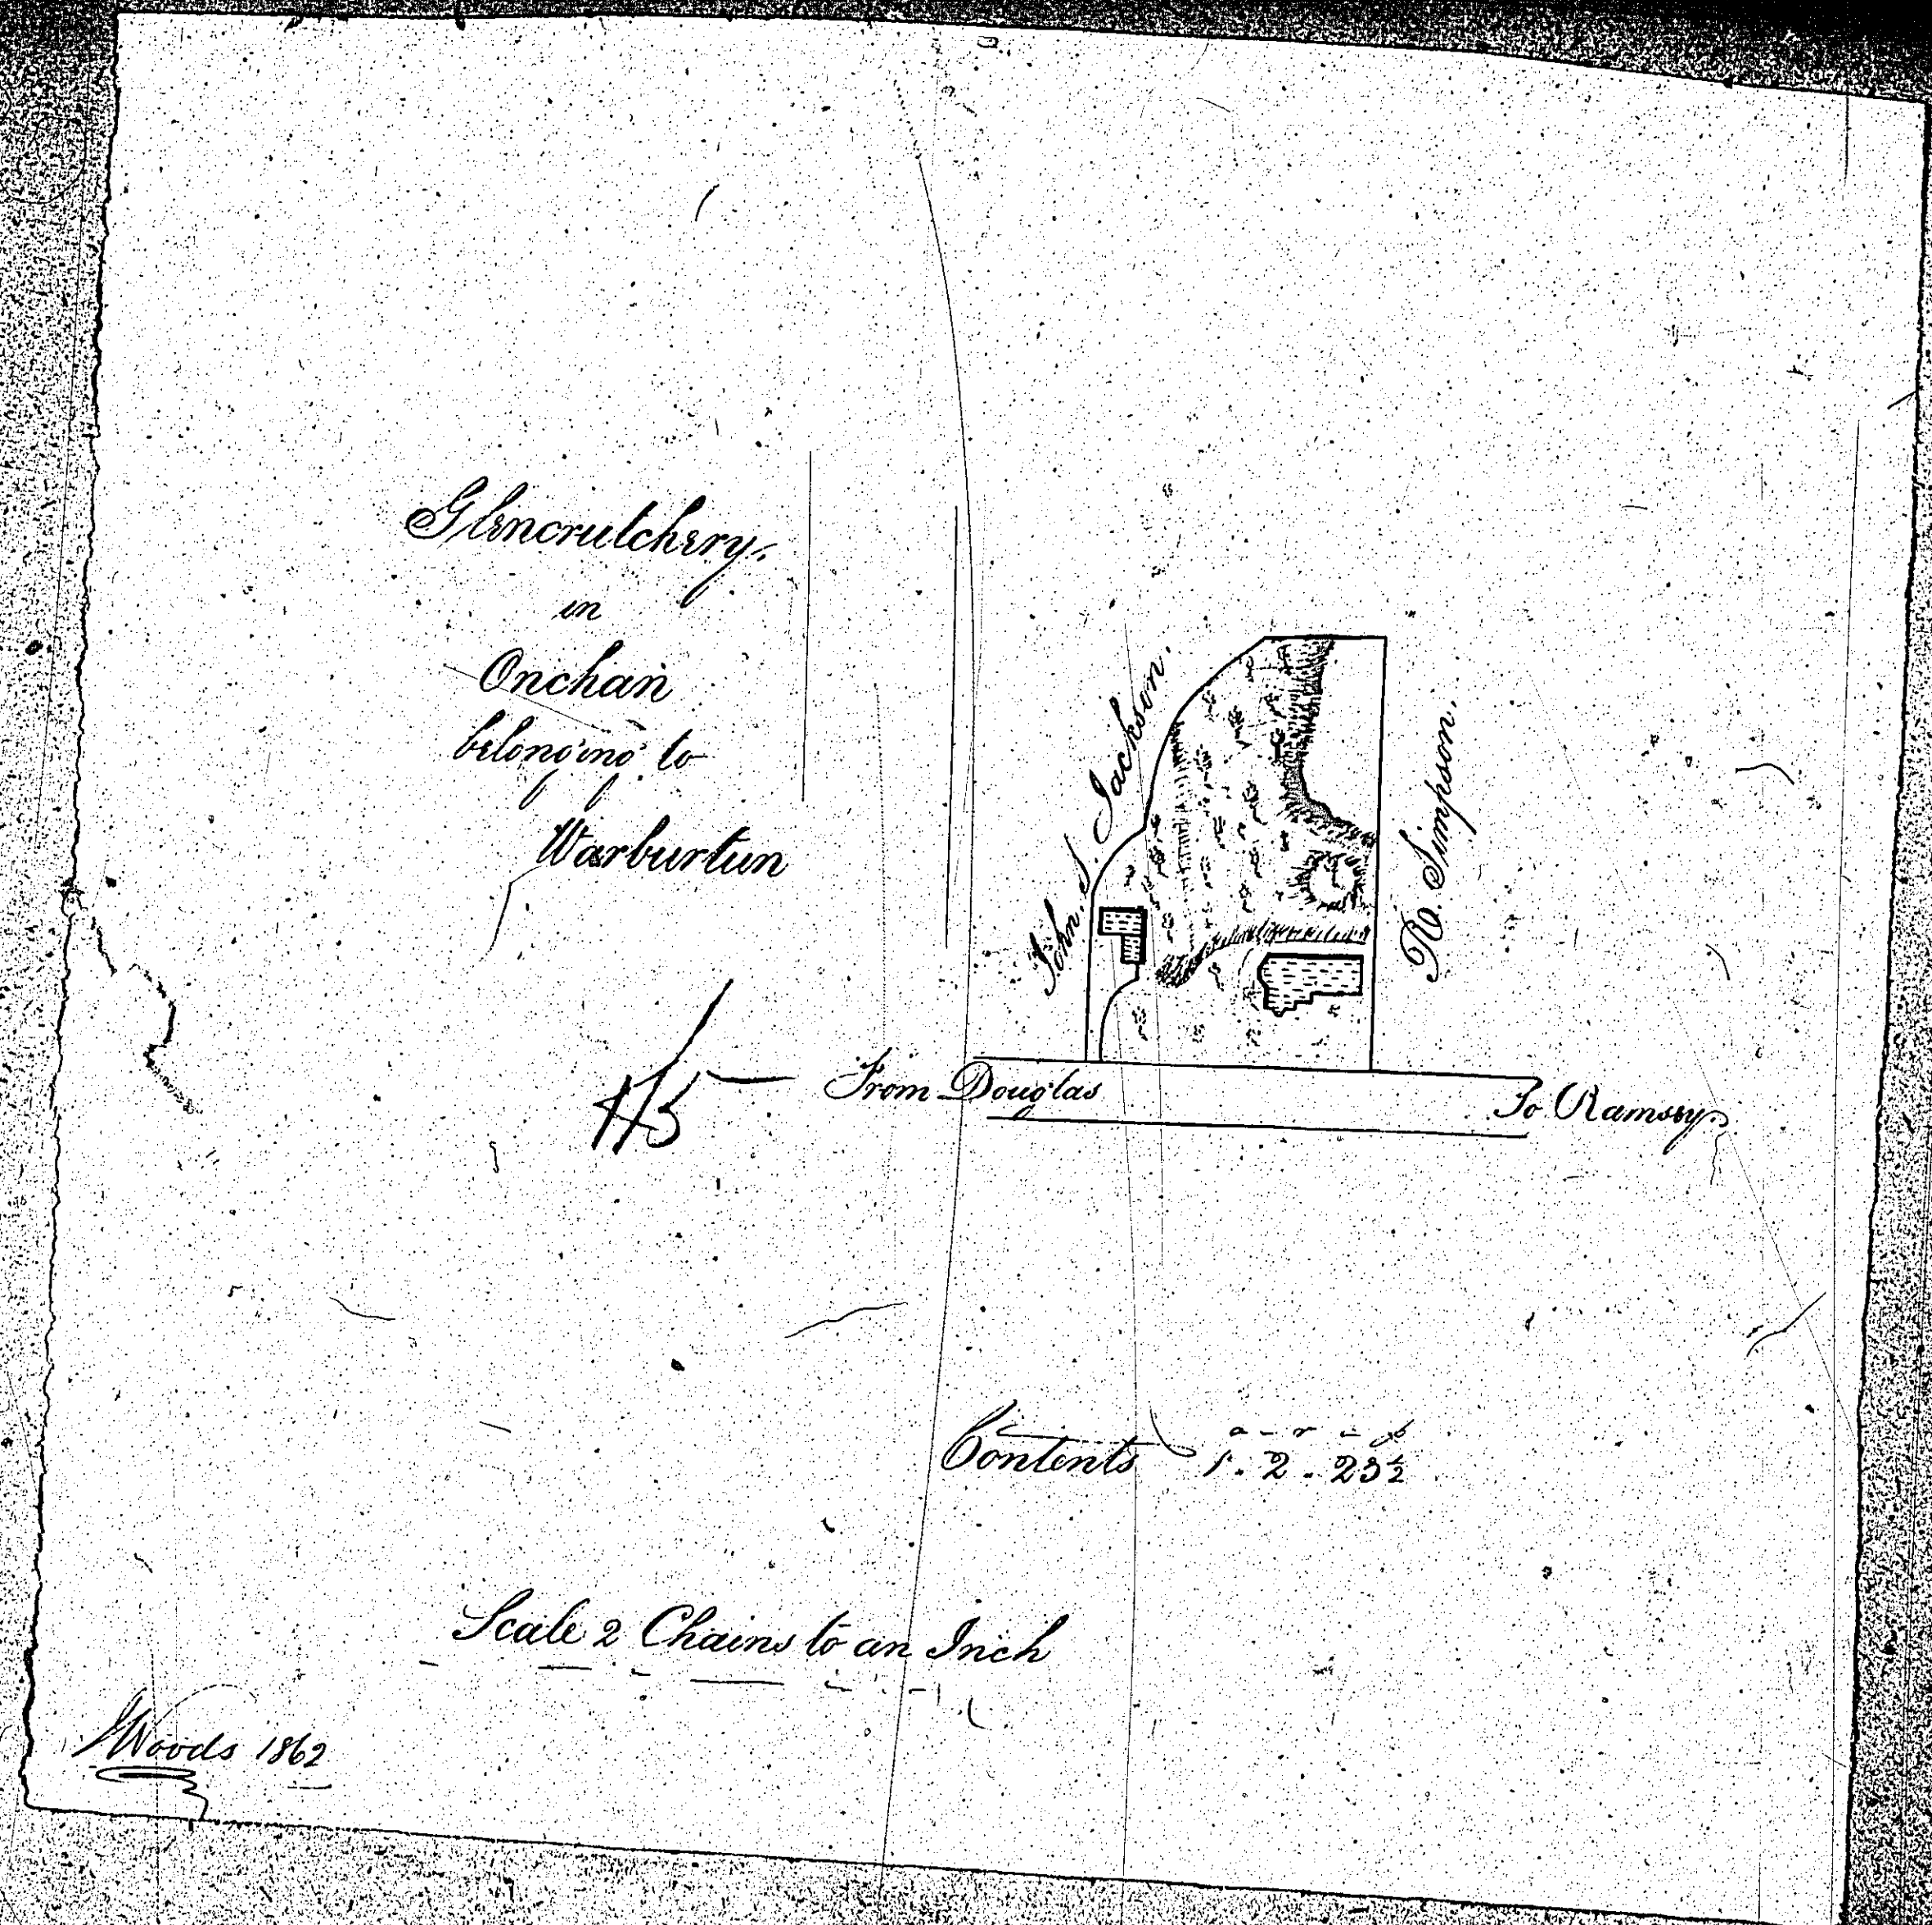 Glencrutchery.
in
Onchan
belonging to
Warburtun
John. S. Jackson.
R. Simpson.
From Douglas
To Ramsey
Contents
a - r - p
1. 2. 23½
Scale 2 Chains to an Inch
Woods 1862